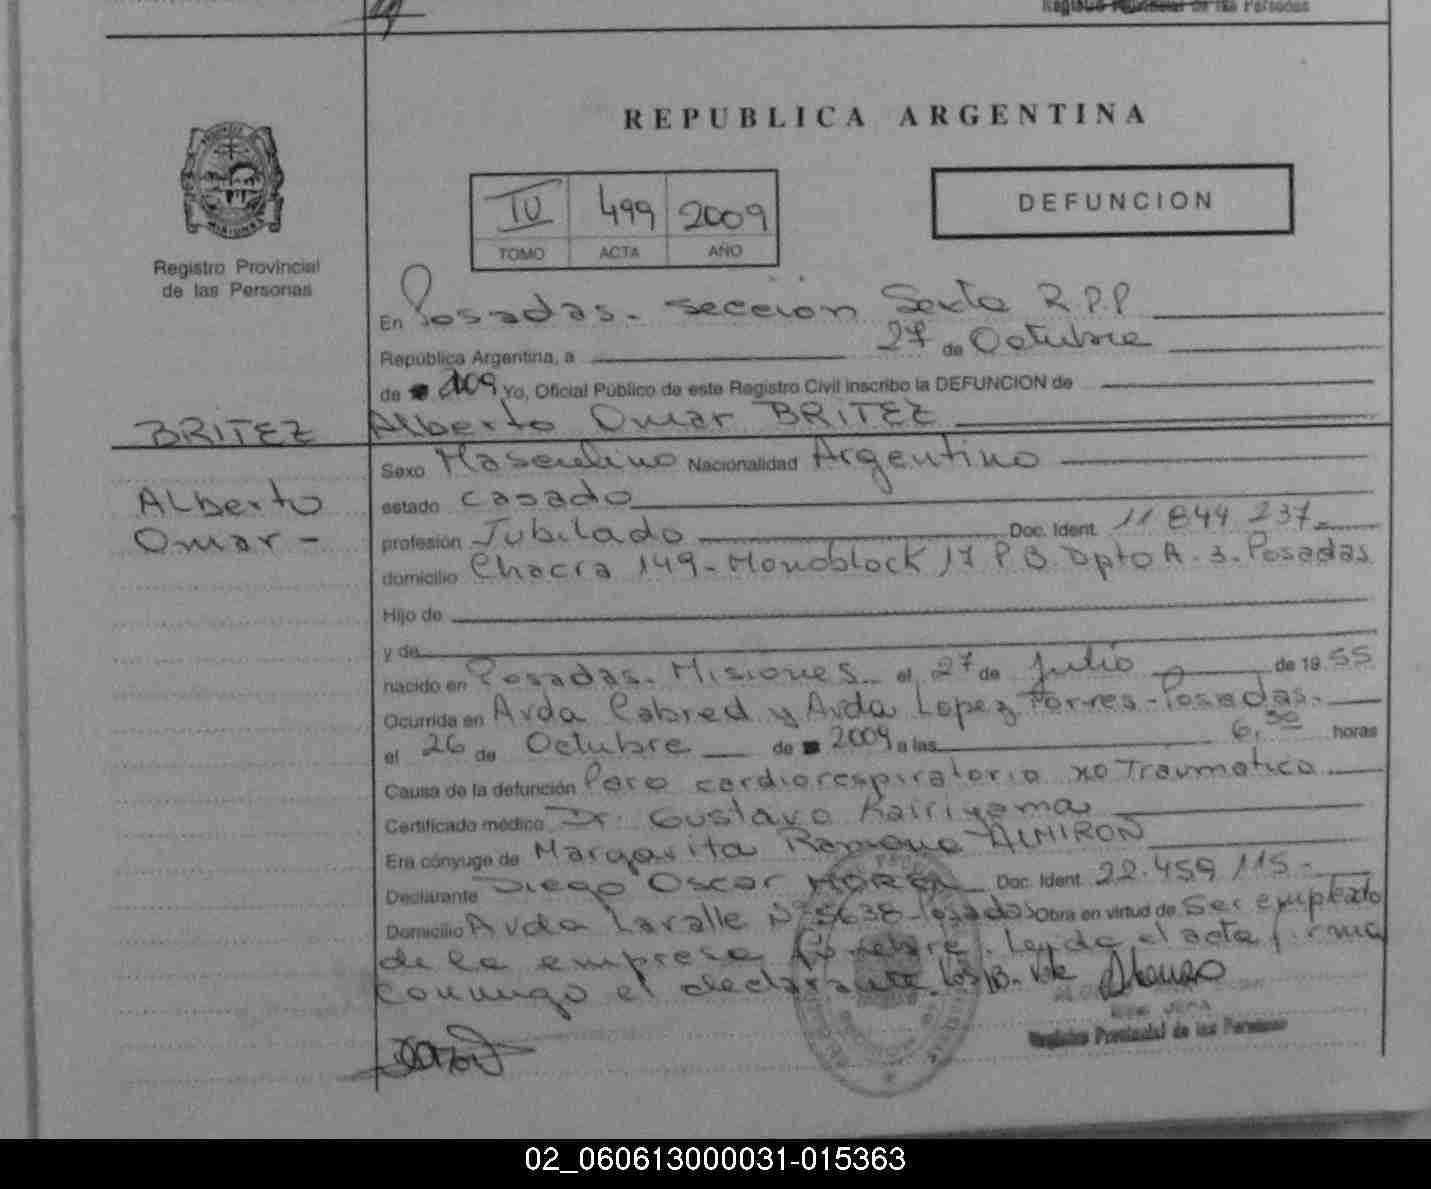 Registro Provincial de las Personas
REPUBLICA ARGENTINA
IV 499 2009
TOMO ACTA AÑO
DEFUNCION
Registro Provincial
de las Personas
En Posadas. sección Sexta R.P.P
República Argentina, a 27 de Octubre
de 2009 Yo, Oficial Público de este Registro Civil inscribo la DEFUNCION de
BRITEZ
Alberto
Omar -
Alberto Omar BRITEZ
Sexo Masculino Nacionalidad Argentino
estado casado
profesión Jubilado Doc. Ident. 11 844 237
domicilio Chacra 149 - Monoblock 17 P.B. Dpto A. 3. Posadas
Hijo de
y de
nacido en Posadas. Misiones el 27 de Julio de 1955
Ocurrida en Avda Cabred y Avda Lopez Torres - Posadas.
el 26 de Octubre de 2009 a las 6,30 horas
Causa de la defunción Paro cardiorespiratorio no Traumatico
Certificado médico Dr. Gustavo
Era cónyuge de Margarita Ramona ALMIRON
Declarante Diego Oscar Doc. Ident. 22.459 115 -
Domicilio Avda Lavalle Nº 5638 - Posadas Obra en virtud de Ser empleado
de la empresa fúnebre. Leyda el acta firma
conmigo el declarante.
Registro Provincial de las Personas
02_060613000031-015363